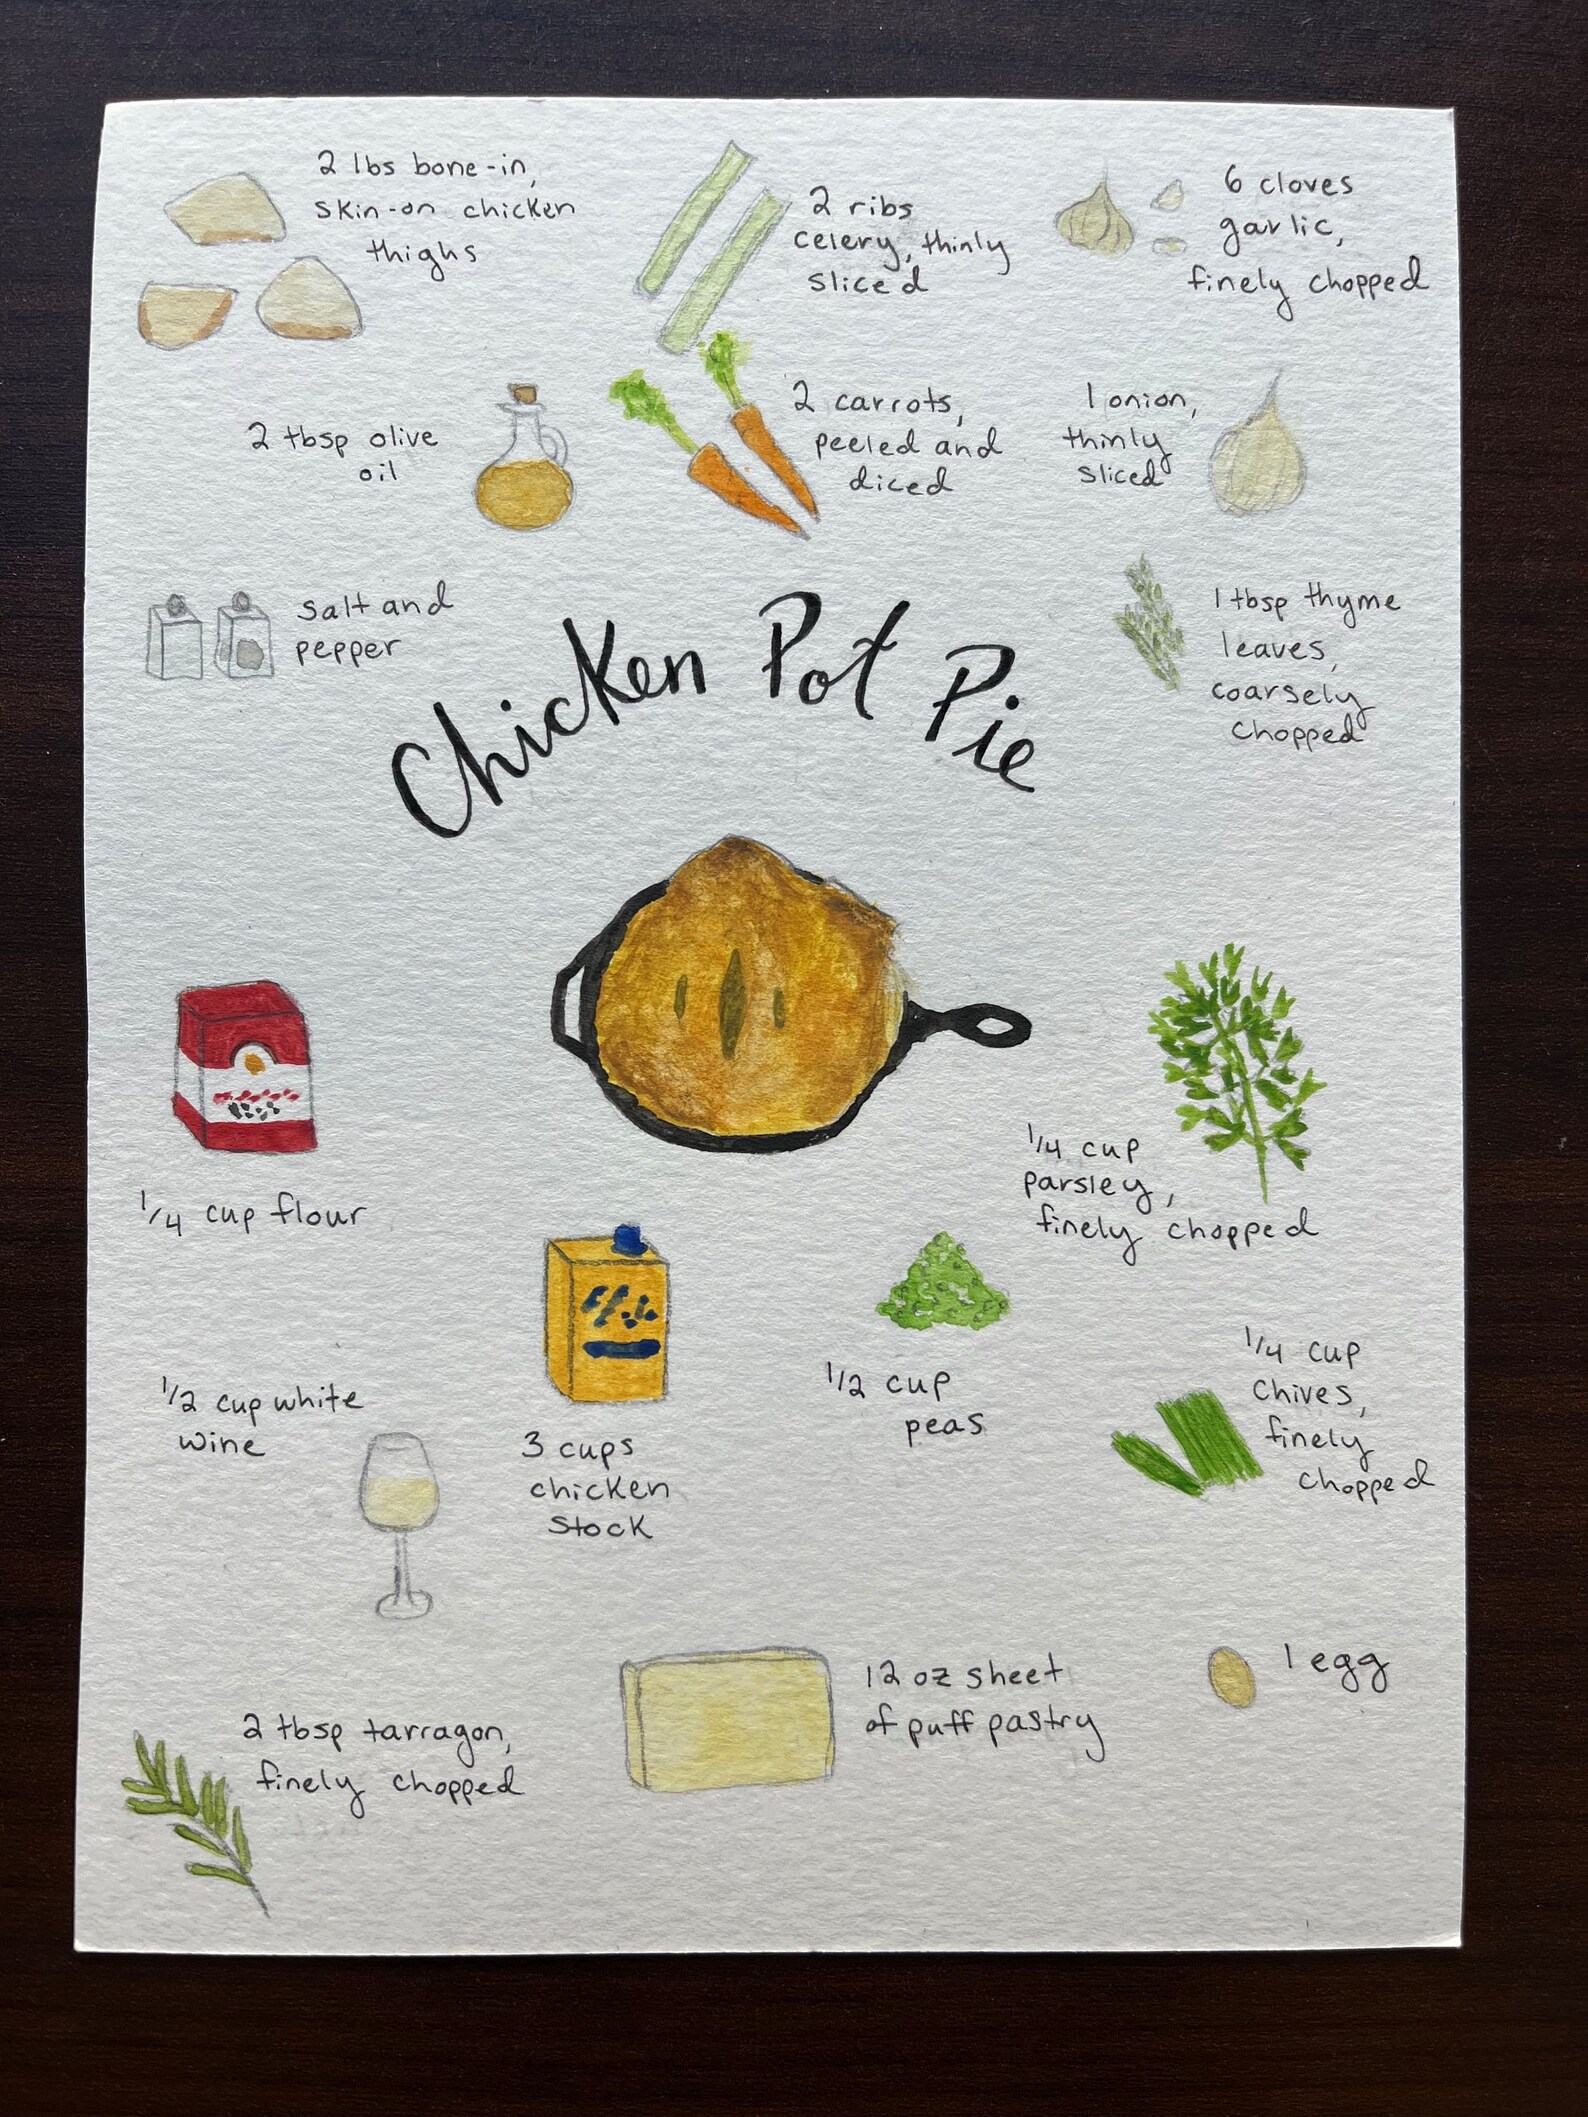 2 lbs bone-in,
skin-on chicken
thighs
2 ribs
celery, thinly
sliced
6 cloves
garlic,
finely chopped
2 tbsp olive
oil
2 carrots,
peeled and
diced
1 onion,
thinly
sliced
salt and
pepper
1 tbsp thyme
leaves,
coarsely
chopped
Chicken Pot Pie
1/4 cup flour
1/4 cup
parsley,
finely chopped
1/2 cup white
wine
3 cups
chicken
stock
1/2 cup
peas
1/4 cup
chives,
finely
chopped
2 tbsp tarragon,
finely chopped
12 oz sheet
of puff pastry
1 egg